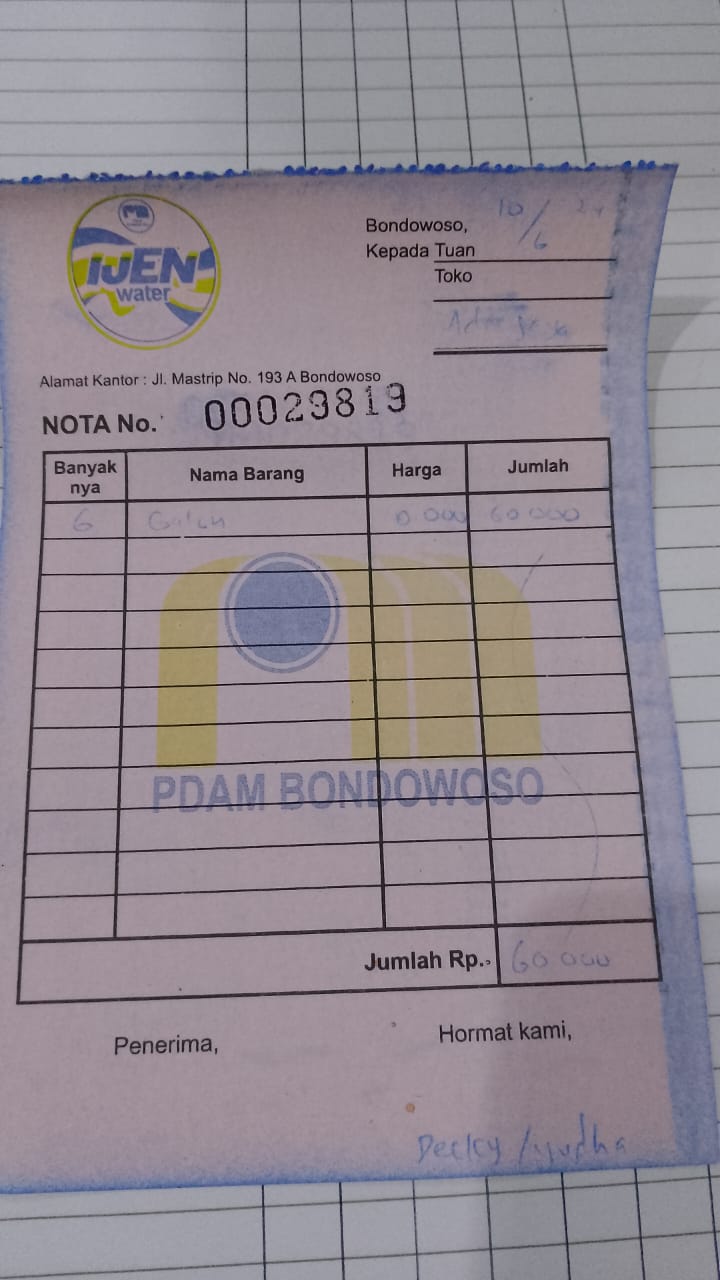 IJEN
water
Bondowoso, 10/6 24
Kepada Tuan
Toko
Alamat Kantor : Jl. Mastrip No. 193 A Bondowoso
NOTA No. 00029819
Banyak nya Nama Barang Harga Jumlah
6 Galon 0 000 60 000
PDAM BONDOWOSO
Jumlah Rp. 60 000
Penerima, Hormat kami,
Decky /yudha